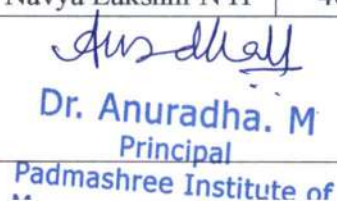 Navya Lakshmi N H
Dr. Anuradha. M
Principal
Padmashree Institute of